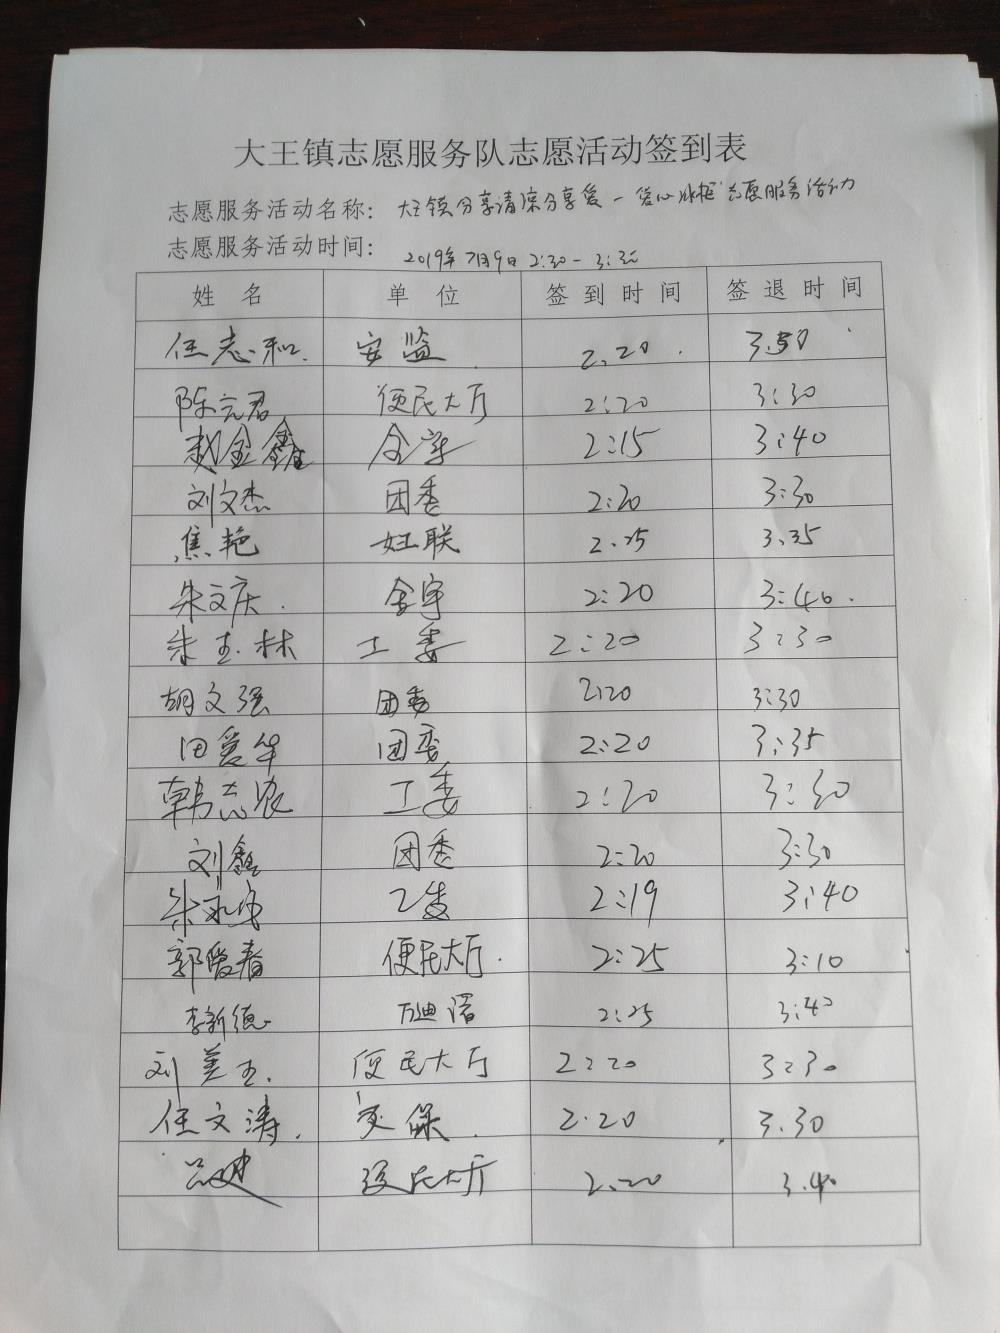 大王镇志愿服务队志愿活动签到表
志愿服务活动名称：大王镇分享清凉分享爱—"爱心冰柜"志愿服务活动
志愿服务活动时间：2019年7月9日 2:30-3:30
姓名 单位 签到时间 签退时间
任志和. 安监 2.20 3.50
陈元君 便民大厅 2:20 3:30
赵金鑫 金宇 2:15 3:40
刘文杰 团委 2:20 3:30
焦艳 妇联 2.25 3.35
朱文庆. 金宇 2:20 3:40.
朱玉林 工委 2:20 3:30
胡文强 团委 2:20 3:30
田爱华 团委 2:20 3:35
韩志农 工委 2:20 3:30
刘鑫 团委 2:20 3:30
朱 2:19 3:40
郭爱春 便民大厅. 2:25 3:10
李新德 万迪诺 2:25 3:40
刘美玉. 便民大厅 2:20 3:30
任文涛. 安保. 2.20 3.30
吕建 便民大厅 2.20 3.40